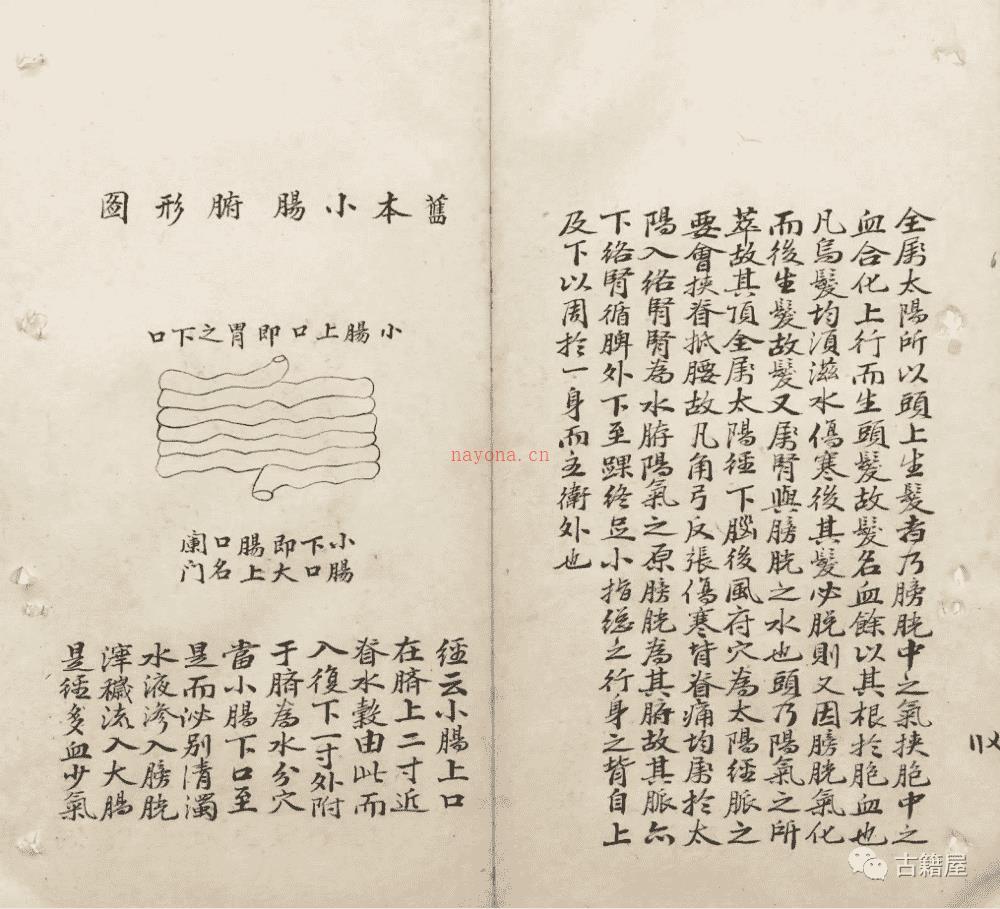 全屬太陽所以頭上生髮者乃膀胱中之氣挾胞中之
血合化上行而生頭髮故髮名血餘以其根於胞血也
凡烏髮均須滋水傷寒後其髮必脫則又因膀胱氣化
而後生髮故髮又屬腎與膀胱之水也頭乃陽氣之所
萃故其頂全屬太陽經下腦後風府穴為太陽經脈之
要會挾脊抵腰故凡角弓反張傷寒背脊痛均屬於太
陽入絡腎腎為水腑陽氣之原膀胱為其腑故其脈亦
下絡腎循脾外下至踝終足小指總之行身之背自上
及下以周於一身而主衛外也
舊本小腸腑形圖
小腸上口即胃之下口
小腸下口即大腸上口名闌门
經云小腸上口
在臍上二寸近
脊水穀由此而
入復下一寸外附
于臍為水分穴
當小腸下口至
是而泌别清濁
水液滲入膀胱
滓穢流入大腸
是經多血少氣
nayona.cn
古籍屋